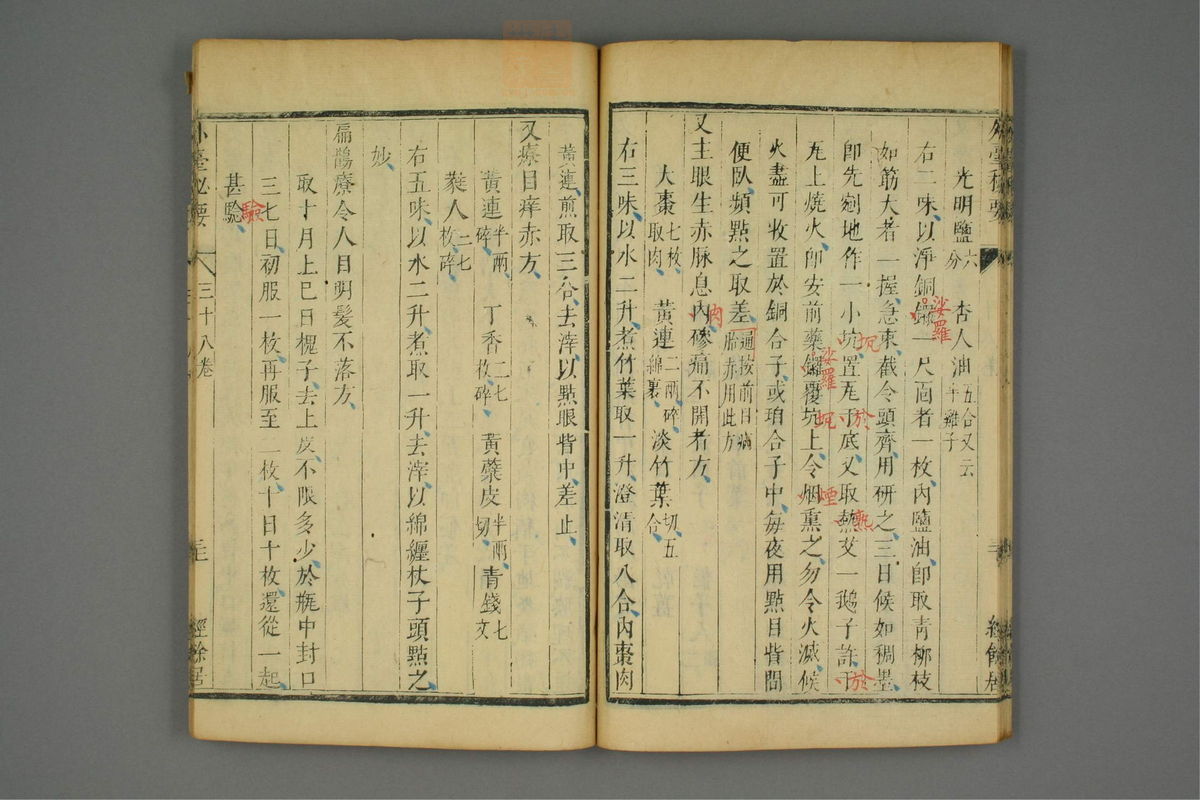 外臺秘要
光明鹽六分 杏人油五合又云半雞子
右二味以淨銅鑼一尺面者一枚內鹽油卽取青柳枝
娑羅
如筯大者一握急束截令頭齊用研之三日候如稠墨
卽先剜地作一小坑置瓦于底又取熱艾一鵝子許于
坑 於 熟 於
瓦上燒火卽安前藥鑼覆坑上令烟熏之勿令火滅候
娑羅 坑 煙
火盡可收置於銅合子或珀合子中每夜用點目眥間
便臥頻點之取差
胎赤用此方
又主眼生赤脉息內磣痛不開者方
肉
大棗七枚取肉 黃連二兩碎綿裹 淡竹葉切五合
右三味以水二升煮竹葉取一升澄清取八合內棗肉
經餘居
黃連煎取三合去滓以點眼眥中差止
又療目痒赤方
黃連半兩碎 丁香二七枚碎 黃蘗皮半兩切 青錢七文
蕤人二七枚碎
右五味以水二升煮取一升去滓以綿纏杖子頭點之
妙
扁鵲療令人目明髮不落方
取十月上巳日槐子去上皮不限多少於瓶中封口
三七日初服一枚再服至二枚十日十枚還從一起
甚驗
驗
外臺秘要 三十八卷 經餘居